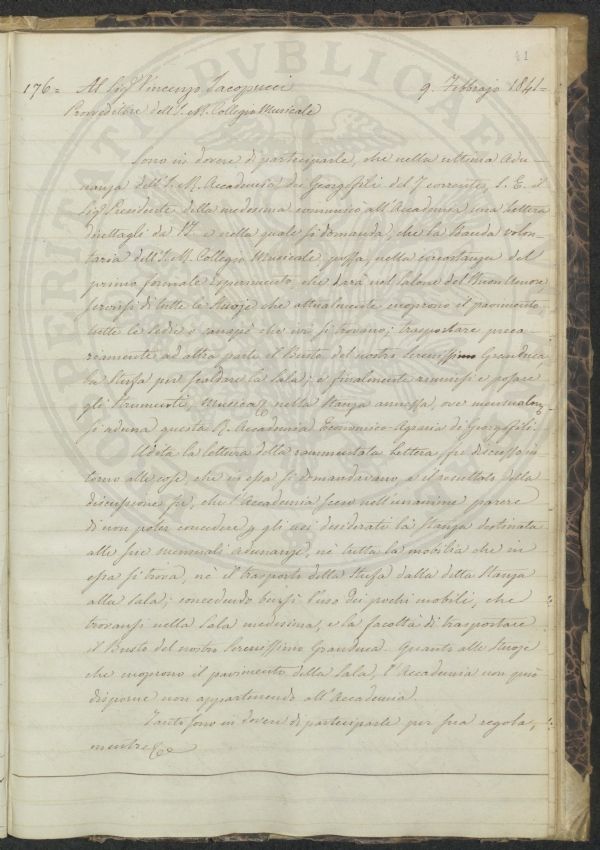 41
176= Al Sig.r Vincenzo Jacopucci 9. Febbrajo 1841=
Provveditore dell'I. e R. Collegio Musicale
Sono in dovere di parteciparle, che nella ultima Adu-
nanza dell'I. e R. Accademia dei Georgofili del 7 corrente, S. E. il
Sig.r Presidente della medesima comunicò all'Accademia una lettera
direttagli da e nella quale si domanda, che la Banda volon-
taria dell'I. e R. Collegio Musicale possa, nella circostanza del
primo formale esperimento, che darà nel Salone del Buon Umore
servirsi di tutte le Stuoje che attualmente cuoprono il pavimento,
tutte le sedie e canapè che ivi si trovano; trasportare preca-
riamente ad altra parte il Busto del nostro Serenissimo Granduca,
la Stufa per scaldare la Sala; e finalmente riunirsi e posare
gli Strumenti, Musica &c nella Stanza annessa, ove mensualmte
si aduna questa R. Accademia Economico-Agraria di Georgofili.
Udita la lettura della rammentata Lettera, fu discusso in-
torno alle cose, che in essa si domandavano, e il resultato della
discussione fu, che l'Accademia scese nell'unanime parere
di non poter concedere p gli usi desiderati la Stanza destinata
alle sue mensuali adunanze, nè tutta la mobilia che in
essa si trova, nè il trasporto della Stufa dalla detta Stanza
alla Sala; concedendo bensì l'uso dei pochi mobili, che
trovansi nella Sala medesima, e la facoltà di trasportare
il Busto del nostro Serenissimo Granduca. Quanto alle Stuoje
che cuoprono il pavimento della Sala, l'Accademia non può
disporne non appartenendo all'Accademia.
Tanto sono in dovere di parteciparle per sua regola,
mentre &c
PERITATI PVBLICAE